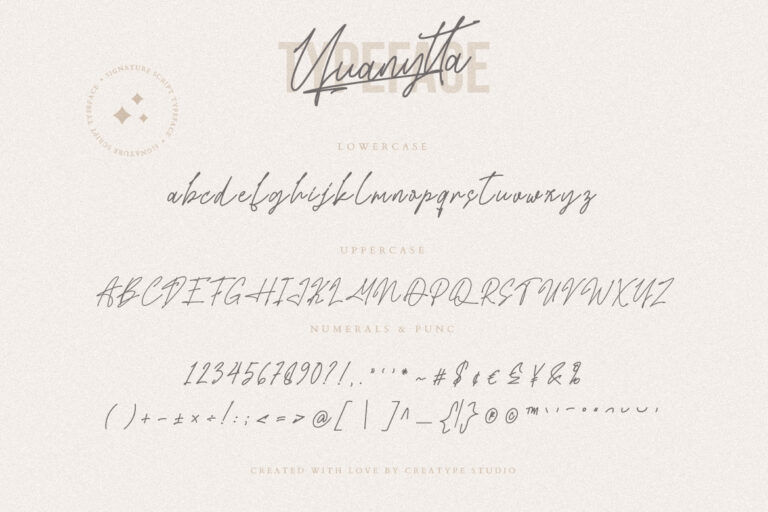 TYPEFACE
Yuanytta
• SIGNATURE SCRIPT TYPEFACE • SIGNATURE SCRIPT TYPEFACE
LOWERCASE
abcdefghijklmnopqrstuvwxyz
UPPERCASE
ABCDEFGHIJKLMNOPQRSTUVWXYZ
NUMERALS & PUNC
1234567890?!,."''"*~#$¢€£¥&%
()+-±×÷!:;<=>@[\]^_{|}®©™
CREATED WITH LOVE BY CREATYPE STUDIO